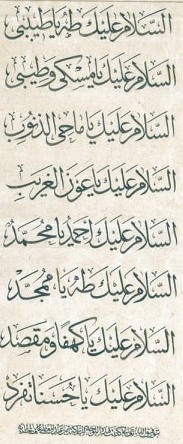 السلام عليك طه يا طبيبي
السلام عليك يا مسكي وطيبي
السلام عليك يا ماحي الذنوب
السلام عليك يا عون الغريب
السلام عليك احمد يا محمد
السلام عليك طه يا ممجد
السلام عليك يا كهفا ومقصد
السلام عليك يا حسنا تفرد